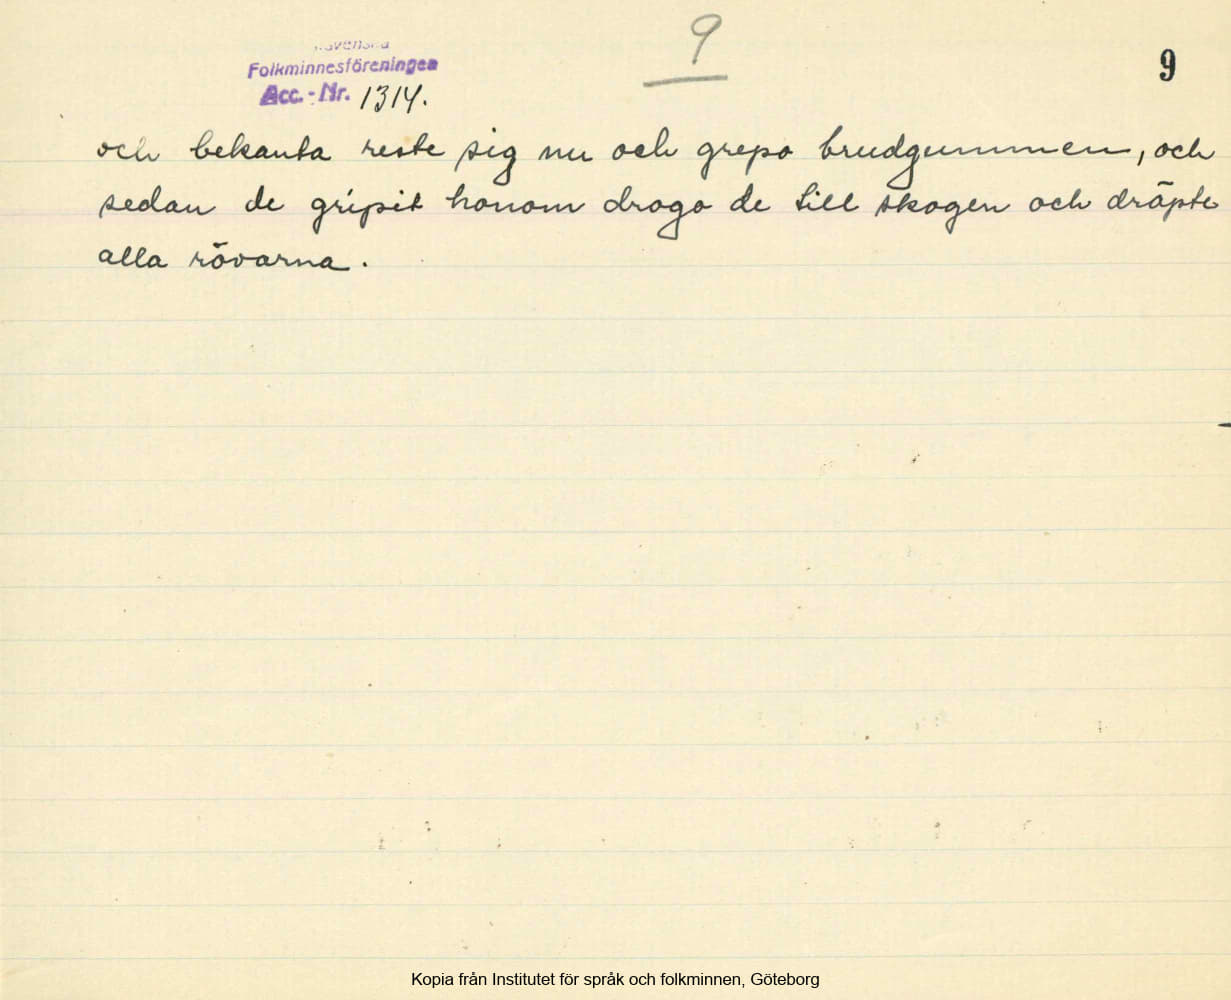 9
9
Folkminnesföreningen
Acc.-Nr. 1314.
och bekanta reste sig nu och grepo brudgummen, och
sedan de gripit honom drogo de till skogen och dräpte
alla rövarna.
Kopia från Institutet för språk och folkminnen, Göteborg